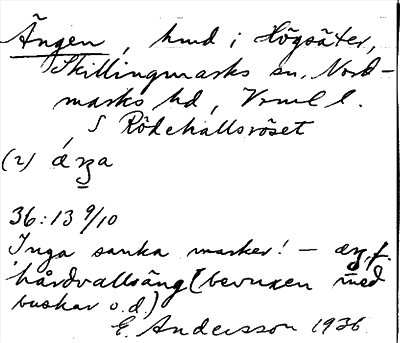 Ängen, hmd i Högsäter,
Skillingmarks sn, Nord-
marks hd, Vrml l.
S Rödehallsröset
(2) ǽŋa
36:13 9/10
Inga sanka marker! – æŋ, f.
hårdvallsäng (bevuxen med
buskar o.d.)
E. Andersson 1936